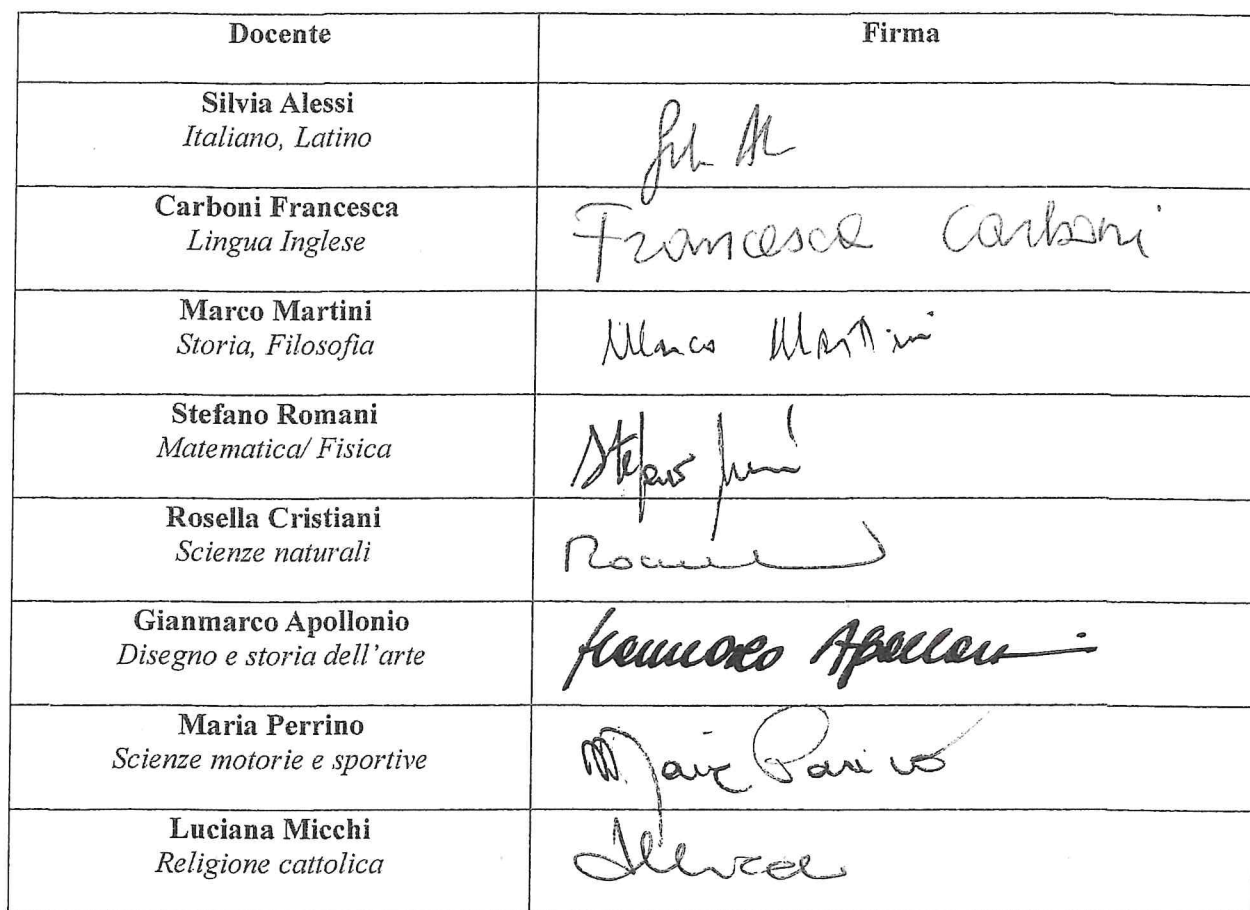 Docente Firma
Silvia Alessi
Italiano, Latino
Carboni Francesca
Lingua Inglese
Francesca Carboni
Marco Martini
Storia, Filosofia
Marco Martini
Stefano Romani
Matematica/ Fisica
Stefano
Rosella Cristiani
Scienze naturali
Gianmarco Apollonio
Disegno e storia dell'arte
Maria Perrino
Scienze motorie e sportive
Luciana Micchi
Religione cattolica